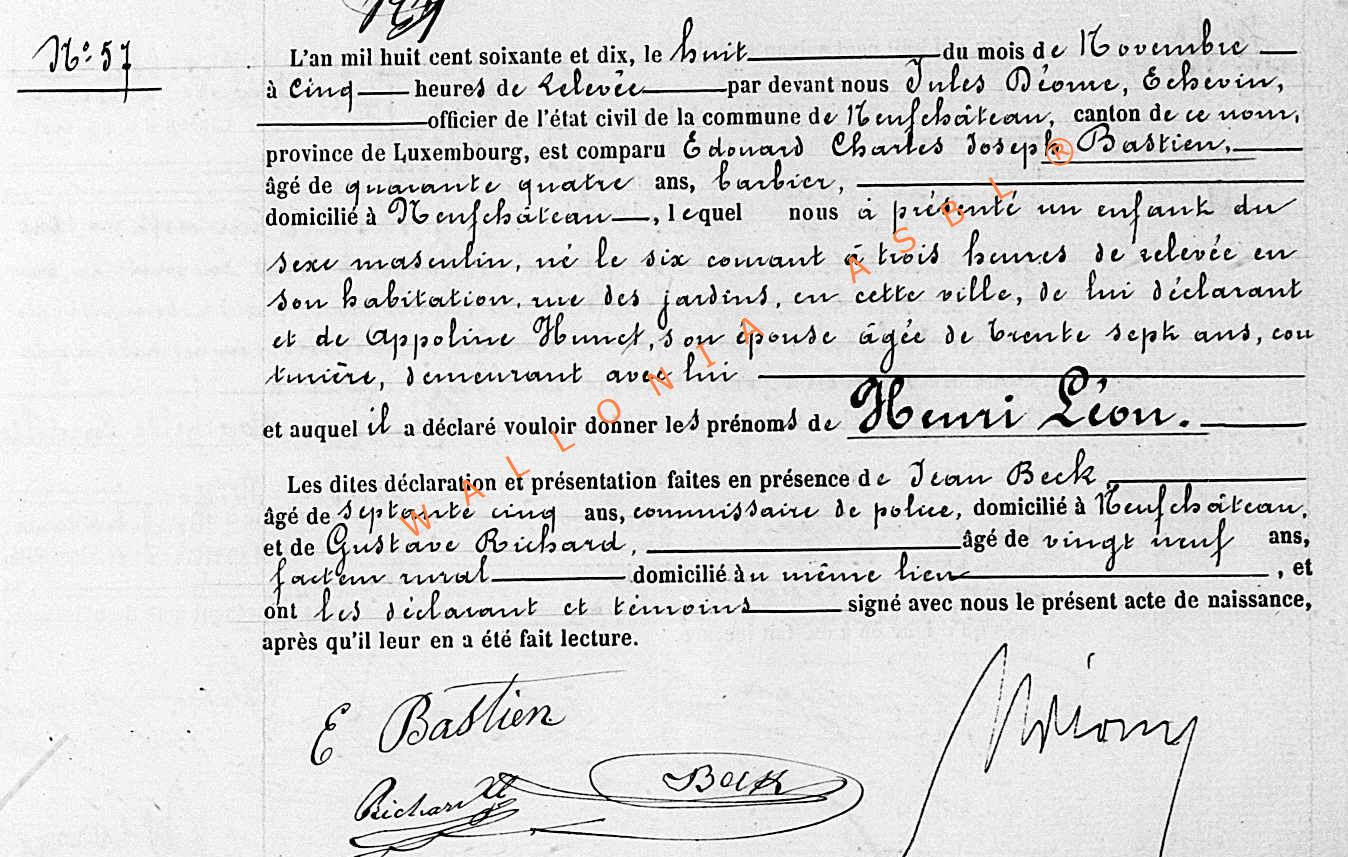 N° 57
L'an mil huit cent soixante et dix, le huit du mois de Novembre
à cinq heures de relevée par devant nous Jules Déome, Echevin,
officier de l'état civil de la commune de Neufchâteau, canton de ce nom,
province de Luxembourg, est comparu Edouard Charles Joseph Bastien,
âgé de quarante quatre ans, barbier,
domicilié à Neufchâteau, lequel nous a présenté un enfant du
sexe masculin, né le six courant à trois heures de relevée en
son habitation, rue des jardins, en cette ville, de lui déclarant
et de Appoline Hunet, son épouse âgée de trente sept ans, cou
turière, demeurant avec lui
et auquel il a déclaré vouloir donner les prénoms de Henri Léon.
Les dites déclaration et présentation faites en présence de Jean Beck
âgé de septante cinq ans, commissaire de police, domicilié à Neufchâteau,
et de Gustave Richard, âgé de vingt neuf ans,
facteur rural domicilié au même lieu, et
ont les déclarant et témoins signé avec nous le présent acte de naissance,
après qu'il leur en a été fait lecture.
E Bastien
Richard
Beck
WALLONIA ASBL ®